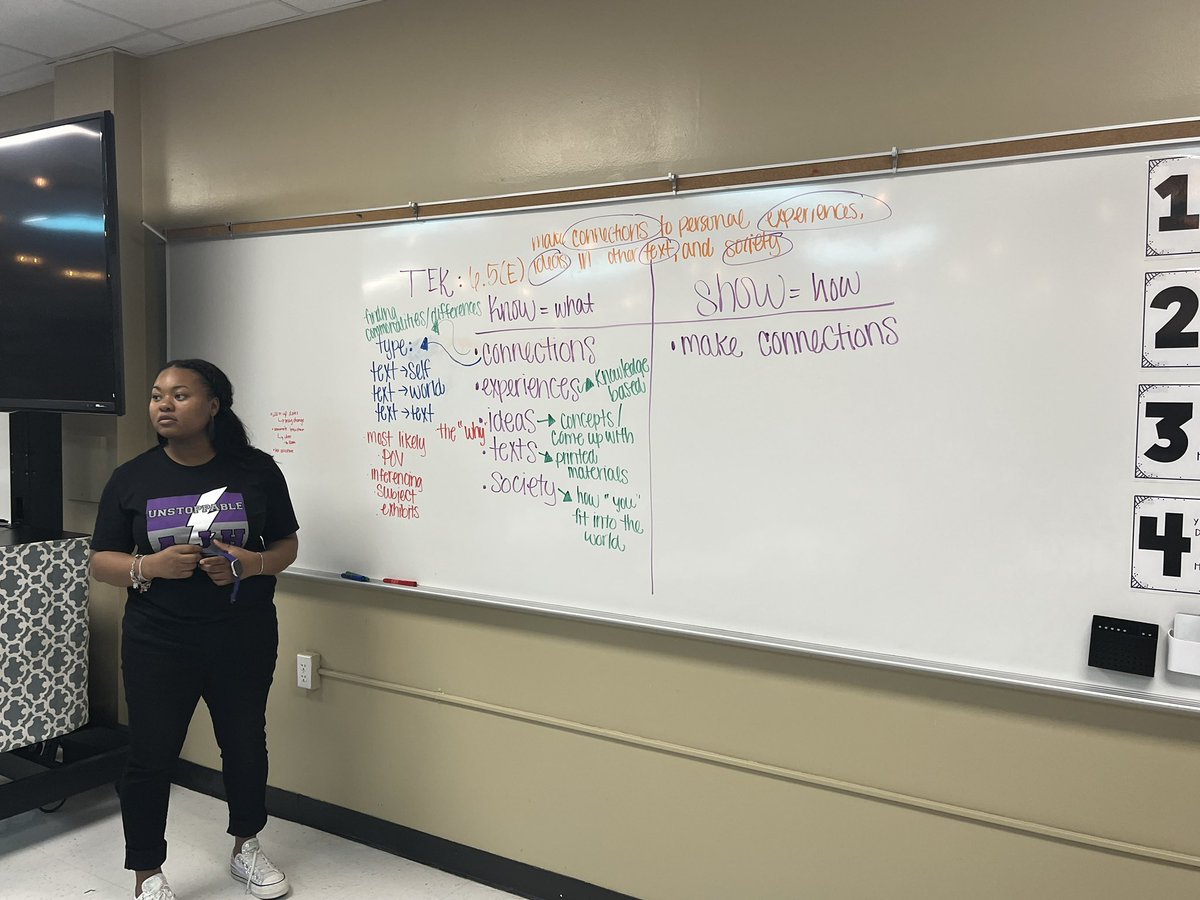 make connections to personal experiences,
TEK: 6.5(E) ideas in other text, and society
Know = what
Show = how
finding
commonalities/differences
type:
text → self
text → world
text → text
• connections
• experiences → knowledge
based
the "why"
• ideas → concepts/
come up with
• texts → printed
materials
• society → how "you"
fit into the
world
most likely
POV
inferencing
subject
exhibits
• make connections
UNSTOPPABLE
1
2
3
4